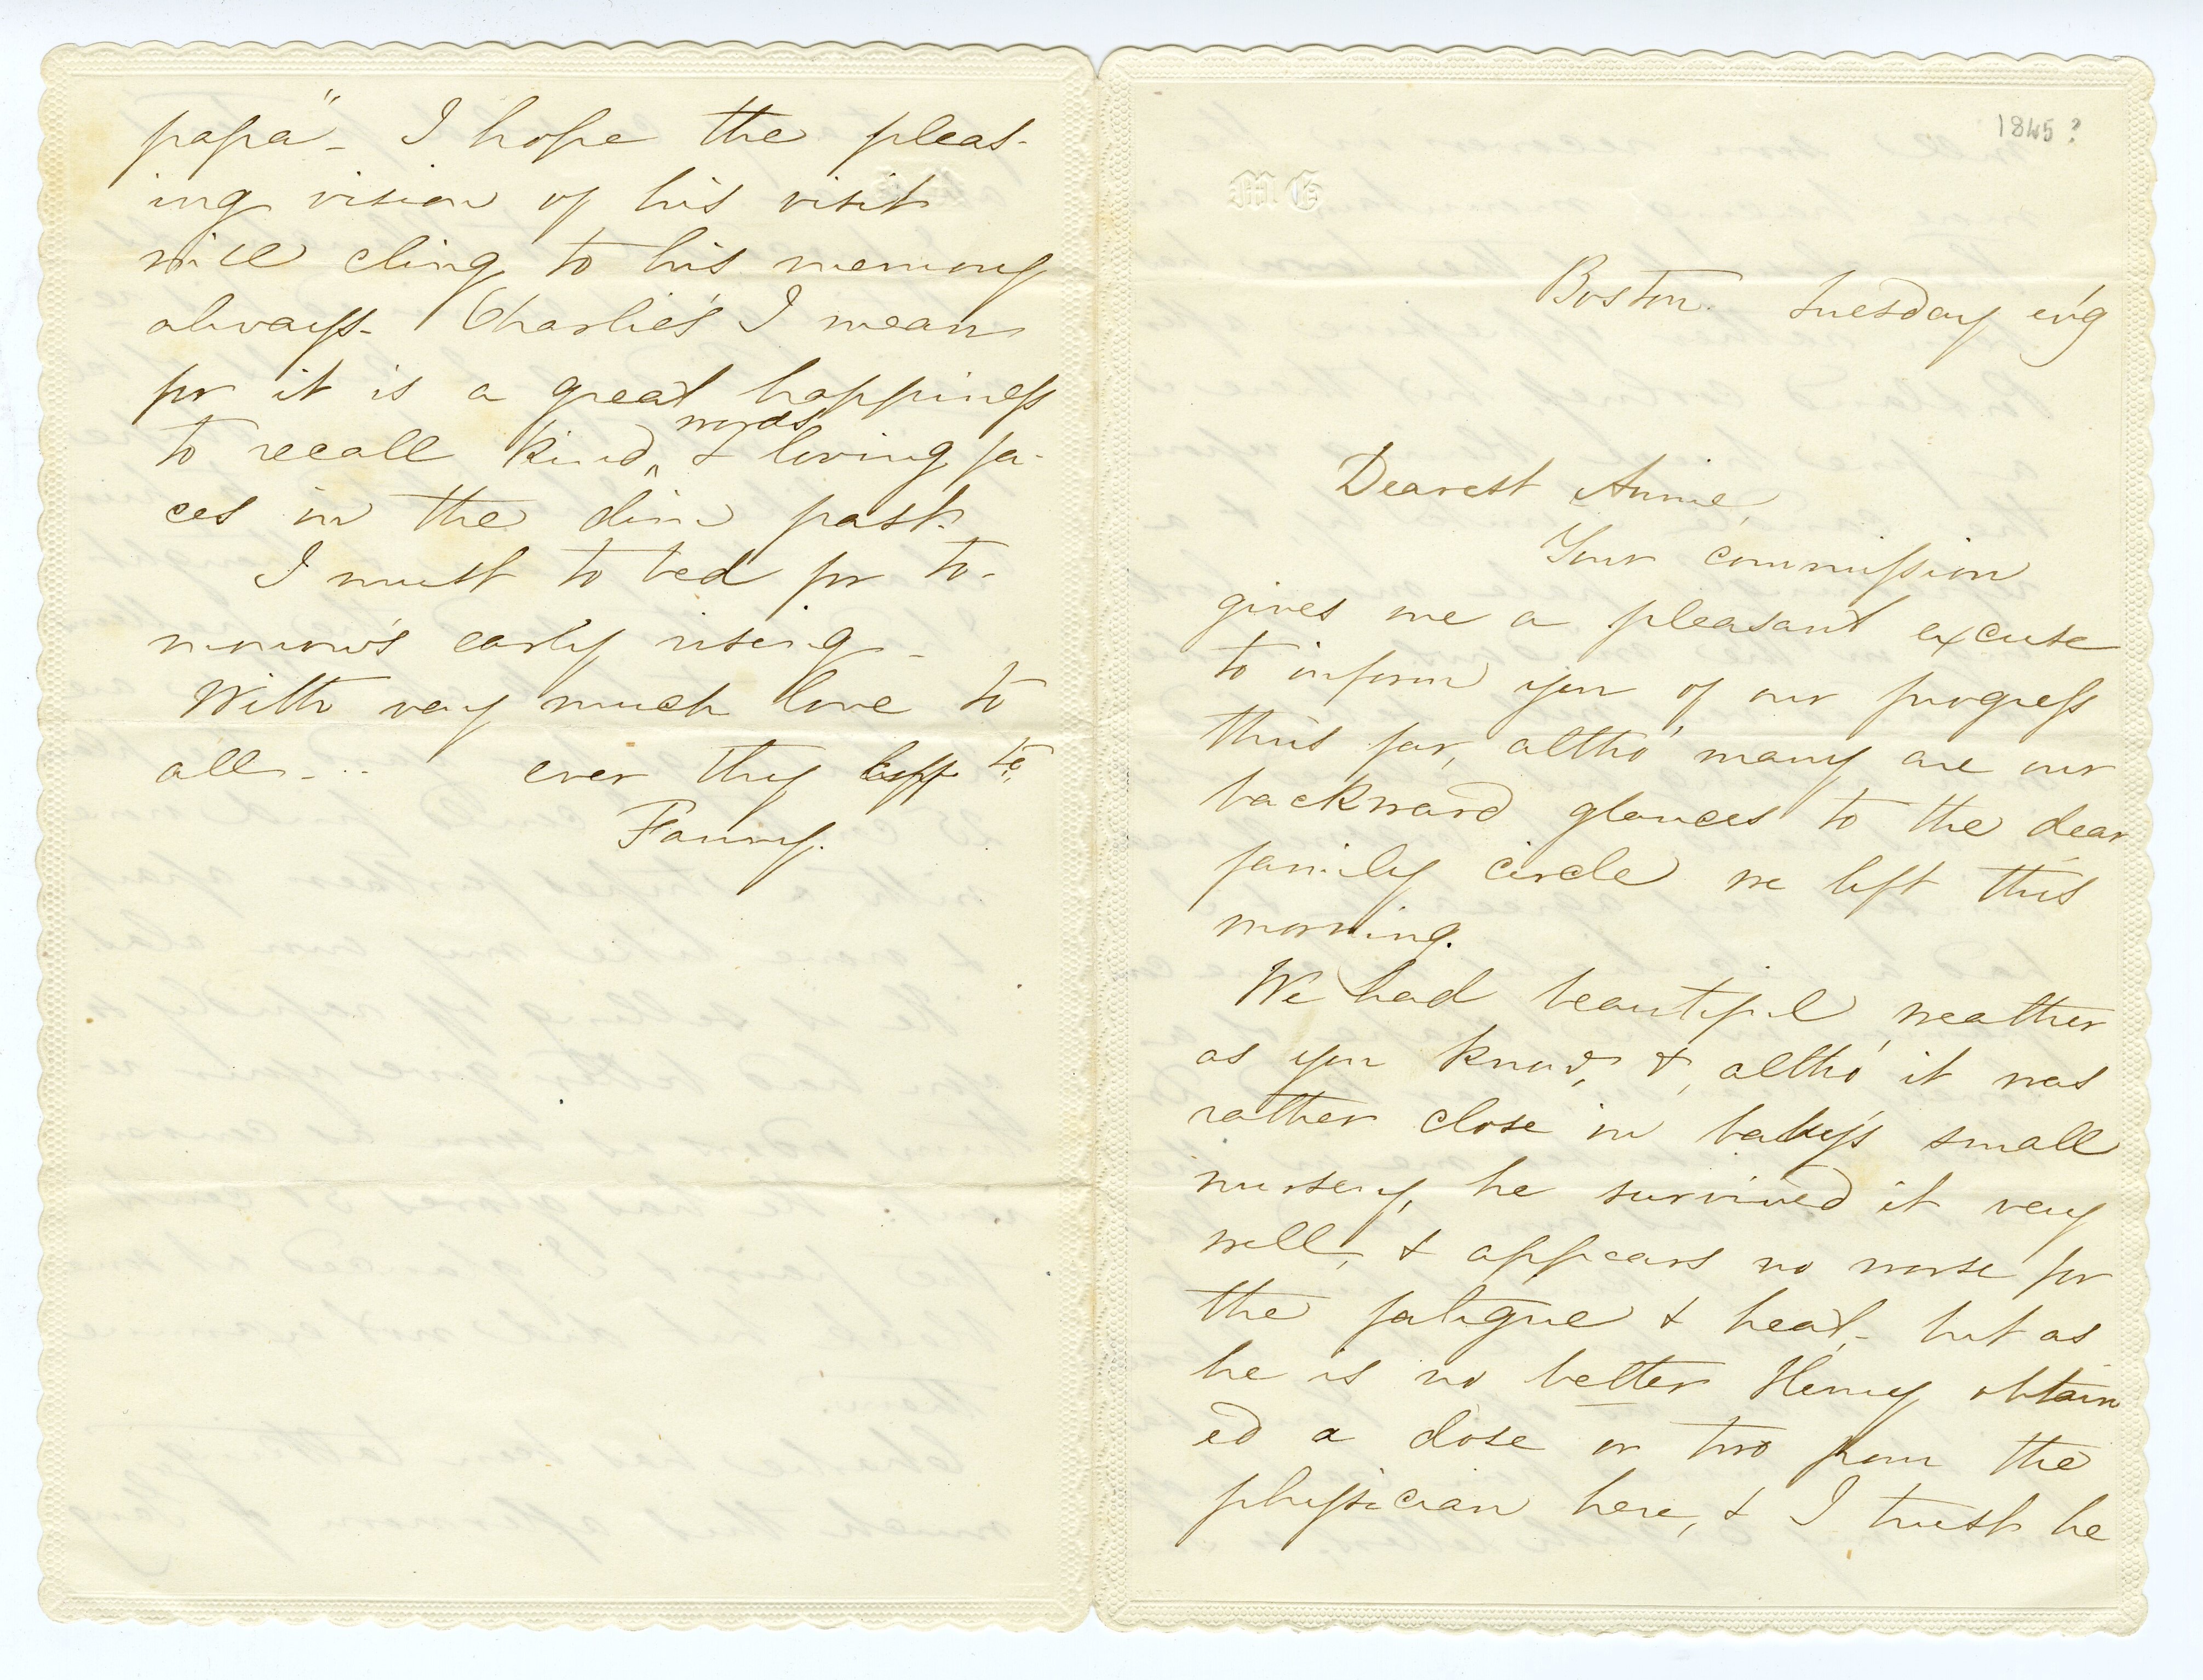 papa" - I hope the pleas-
ing vision of his visit
will cling to his memory
always - Charlie's I mean
for it is a great happiness
to recall kind words & loving fa-
ces in the dim past.
I must to bed for to-
morrow's early rising -
With very much love to
all - .. ever thy affte
Fanny.
1845?
Boston. Tuesday ev'g
Dearest Annie,
Your commission
gives me a pleasant excuse
to inform you of our progress
thus far, altho' many are our
backward glances to the dear
family circle we left this
morning.
We had beautiful weather
as you know, &, altho' it was
rather close in baby's small
nursery, he survived it very
well, & appears no worse for
the fatigue & heat - but as
he is no better Henry obtain
ed a dose or two from the
physician here, & I trust he